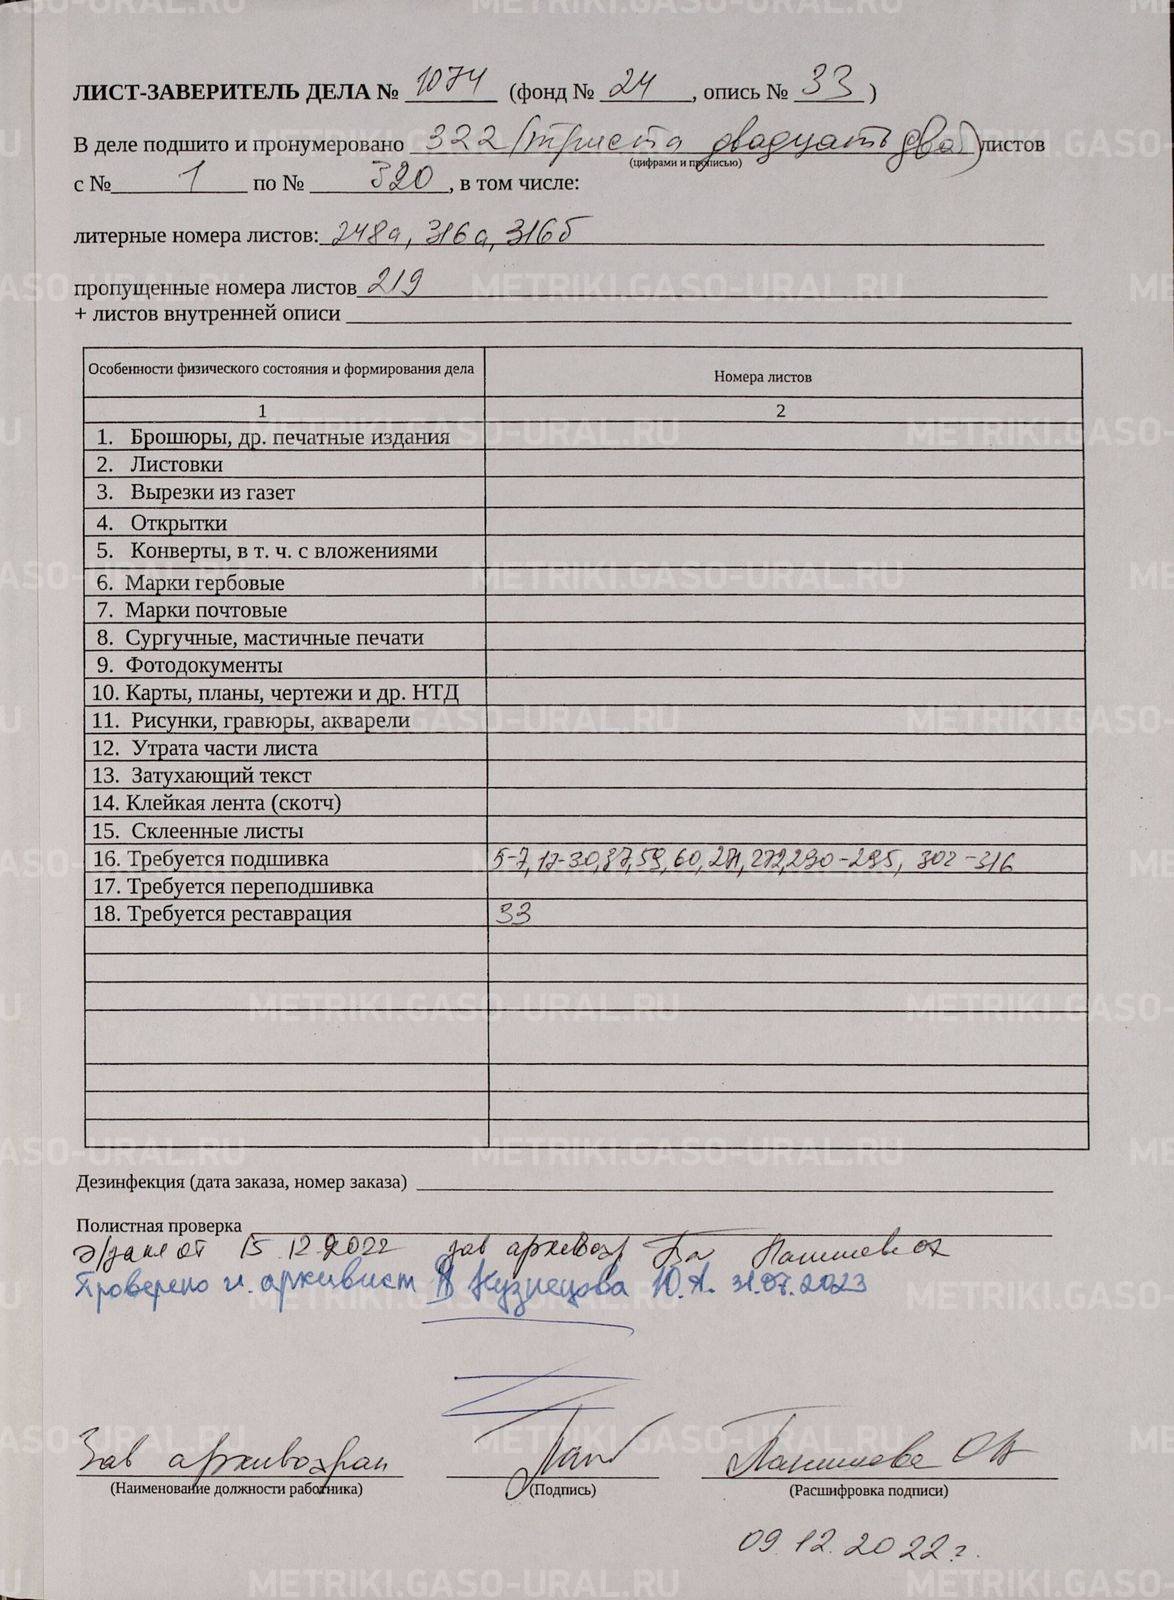 ЛИСТ-ЗАВЕРИТЕЛЬ ДЕЛА № 1074 (фонд № 24, опись № 33)
В деле подшито и пронумеровано 322 (триста двадцать два) листов
(цифрами и прописью)
с № 1 по № 320, в том числе:
литерные номера листов: 248а, 316а, 316б
пропущенные номера листов 219
+ листов внутренней описи
Особенности физического состояния и формирования дела Номера листов
1 2
1. Брошюры, др. печатные издания
2. Листовки
3. Вырезки из газет
4. Открытки
5. Конверты, в т. ч. с вложениями
6. Марки гербовые
7. Марки почтовые
8. Сургучные, мастичные печати
9. Фотодокументы
10. Карты, планы, чертежи и др. НТД
11. Рисунки, гравюры, акварели
12. Утрата части листа
13. Затухающий текст
14. Клейкая лента (скотч)
15. Склеенные листы
16. Требуется подшивка 5-7, 17-30, 37, 59, 60, 271, 272, 290-295, 302-316
17. Требуется переподшивка
18. Требуется реставрация 33
Дезинфекция (дата заказа, номер заказа)
Полистная проверка
от 15.12.2022 зав архивохр
Проверено архивист Кузнецова Ю.А. 31.07.2023
Зав архивохран
(Наименование должности работника) (Подпись) (Расшифровка подписи)
09.12.2022 г.
METRIKI.GASO-URAL.RU